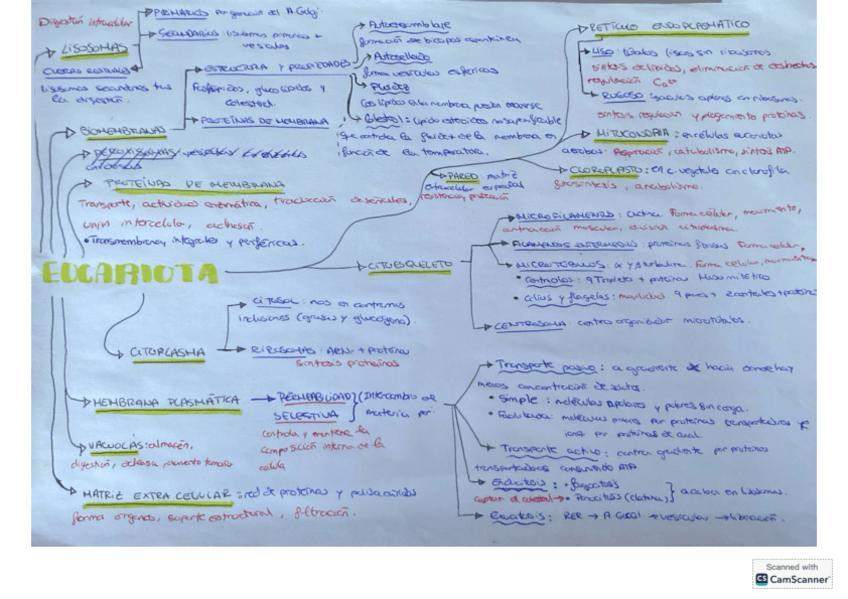 Digestión intracelular
LISOSOMAS
PRIMARIOS
SECUNDARIOS: lisosomas primarios +
vesículas
CUERPOS RESIDUALES
lisosomas secundarios tras
la digestión.
BIOMEMBRANAS
ESTRUCTURA Y PROPIEDADES
Fosfolípidos, glucolípidos y
colesterol.
PROTEÍNAS DE MEMBRANA
Autoensamblaje
formación de bicapas espontánea
Autosellado
forma vesículas esféricas
Fluidez
Los lípidos en la membrana pueden moverse
Colesterol: lípido esteroideo
controla la fluidez de la membrana en
función de la temperatura.
PROTEÍNAS DE MEMBRANA
Transporte, actividad enzimática, traducción de señales,
unión intercelular, adhesión.
• Transmembrana, integrales y periféricas.
PARED: matriz
extracelular especial
resistencia, protección
RETÍCULO ENDOPLASMÁTICO
LISO: túbulos lisos sin ribosomas
síntesis de lípidos, eliminación de deshechos
regulación Ca
RUGOSO: con ribosomas.
síntesis y plegamiento proteínas.
MITOCONDRIA: en células eucariotas
aerobias. Respiración, catabolismo, síntesis ATP.
CLOROPLASTO: en c. vegetales con clorofila
fotosíntesis, anabolismo.
EUCARIOTA
CITOESQUELETO
MICROFILAMENTOS: actina. Forma célular, movimiento,
contracción muscular, división citoplasma.
FILAMENTOS INTERMEDIOS: proteínas fibrosas. Forma celular,
MICROTÚBULOS: α y β tubulina. Forma celular,
• Centriolos: 9 tripletes + proteínas. Huso mitótico
• Cilios y flagelos: movilidad. 9 pares + 2 centrales + proteína
CENTROSOMA centro organizador microtúbulos.
CITOPLASMA
CITOSOL: nos encontramos
inclusiones (grasas y glucógeno).
RIBOSOMAS: ARNr + proteína
síntesis proteínas
MEMBRANA PLASMÁTICA
PERMEABILIDAD
SELECTIVA
(Intercambio de
materia por:
controla y mantiene la
composición interna de la
célula
Transporte pasivo: a gradiente de hacia donde hay
menos concentración de soluto.
• Simple: moléculas apolares y polares sin carga.
• Facilitada: moléculas por proteínas transportadoras y
iones por proteínas de canal.
Transporte activo: contra gradiente por proteínas
transportadoras consumiendo ATP
Endocitosis: • fagocitosis
• Pinocitosis (clatrina)
acaban en lisosomas.
Exocitosis: RER → A. GOLGI → vesículas → liberación.
VACUOLAS: almacén,
digestión, defensa, aumento tamaño
MATRIZ EXTRACELULAR: red de proteínas y polisacáridos
forma órganos, soporte estructural, filtración.
Scanned with
CS CamScanner